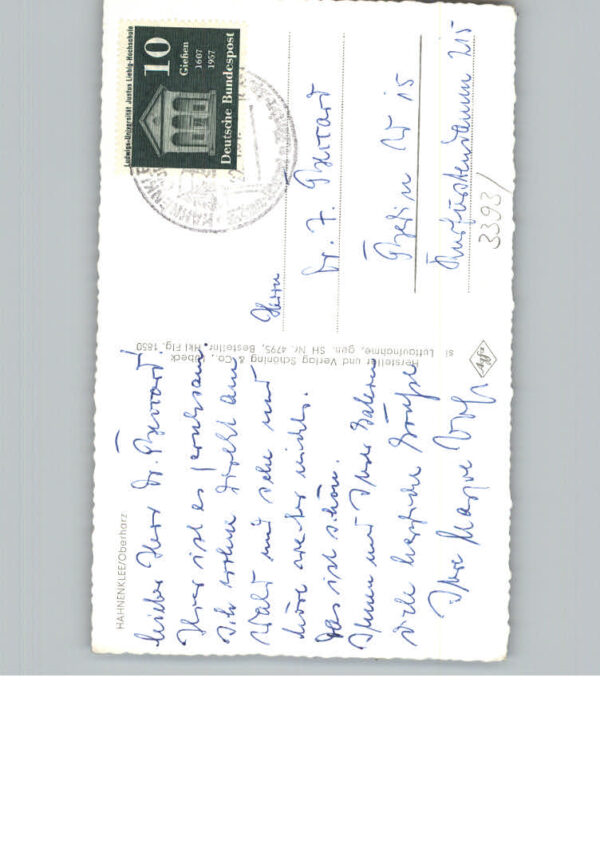 HAHNENKLEE/Oberharz
Lieber Herr Dr. Barrard!
Hier ist es geruhsam.
Ich wohne direkt am
Wald und sehe und
höre weiter nichts.
Das ist schön.
Ihnen und Ihrer
viele herzliche Grüße
Ihre
Hersteller und Verlag Schöning & Co., Lübeck
si Luftaufnahme, gen. SH Nr. 4795, Bestellnr. Hkl Flg. 1850
Agfa
Ludwigs-Universität Justus Liebig-Hochschule
10
Gießen
1607
1957
Deutsche Bundespost
Herrn
Dr. F. Barrard
Berlin W 15
Kurfürstendamm 215
3393/